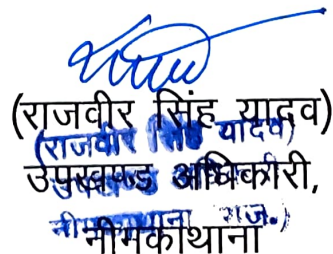 (राजवीर सिंह यादव)
(राजवीर सिंह यादव)
उपखण्ड अधिकारी,
नीमकाथाना राज.)
नीमकाथाना